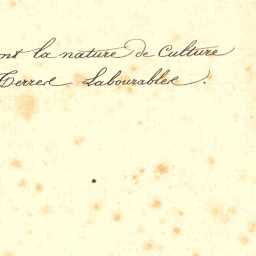 ont la nature de Culture
Terres Labourables.